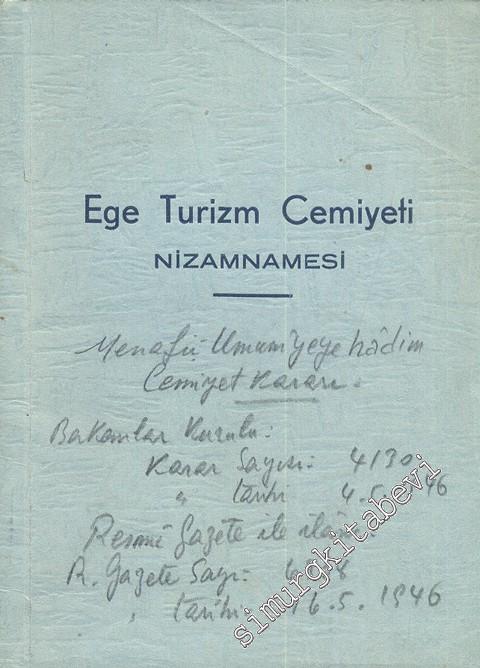 Ege Turizm Cemiyeti
NİZAMNAMESİ
Menafii Umumiyeye hâdim
Cemiyet Kararı.
Bakanlar Kurulu:
Karar Sayısı: 4130
" tarihi 4.5. 46
Resmî Gazete ile ilânı.
R. Gazete Sayı:
" tarihi 16.5.1946
simurgkitabevi